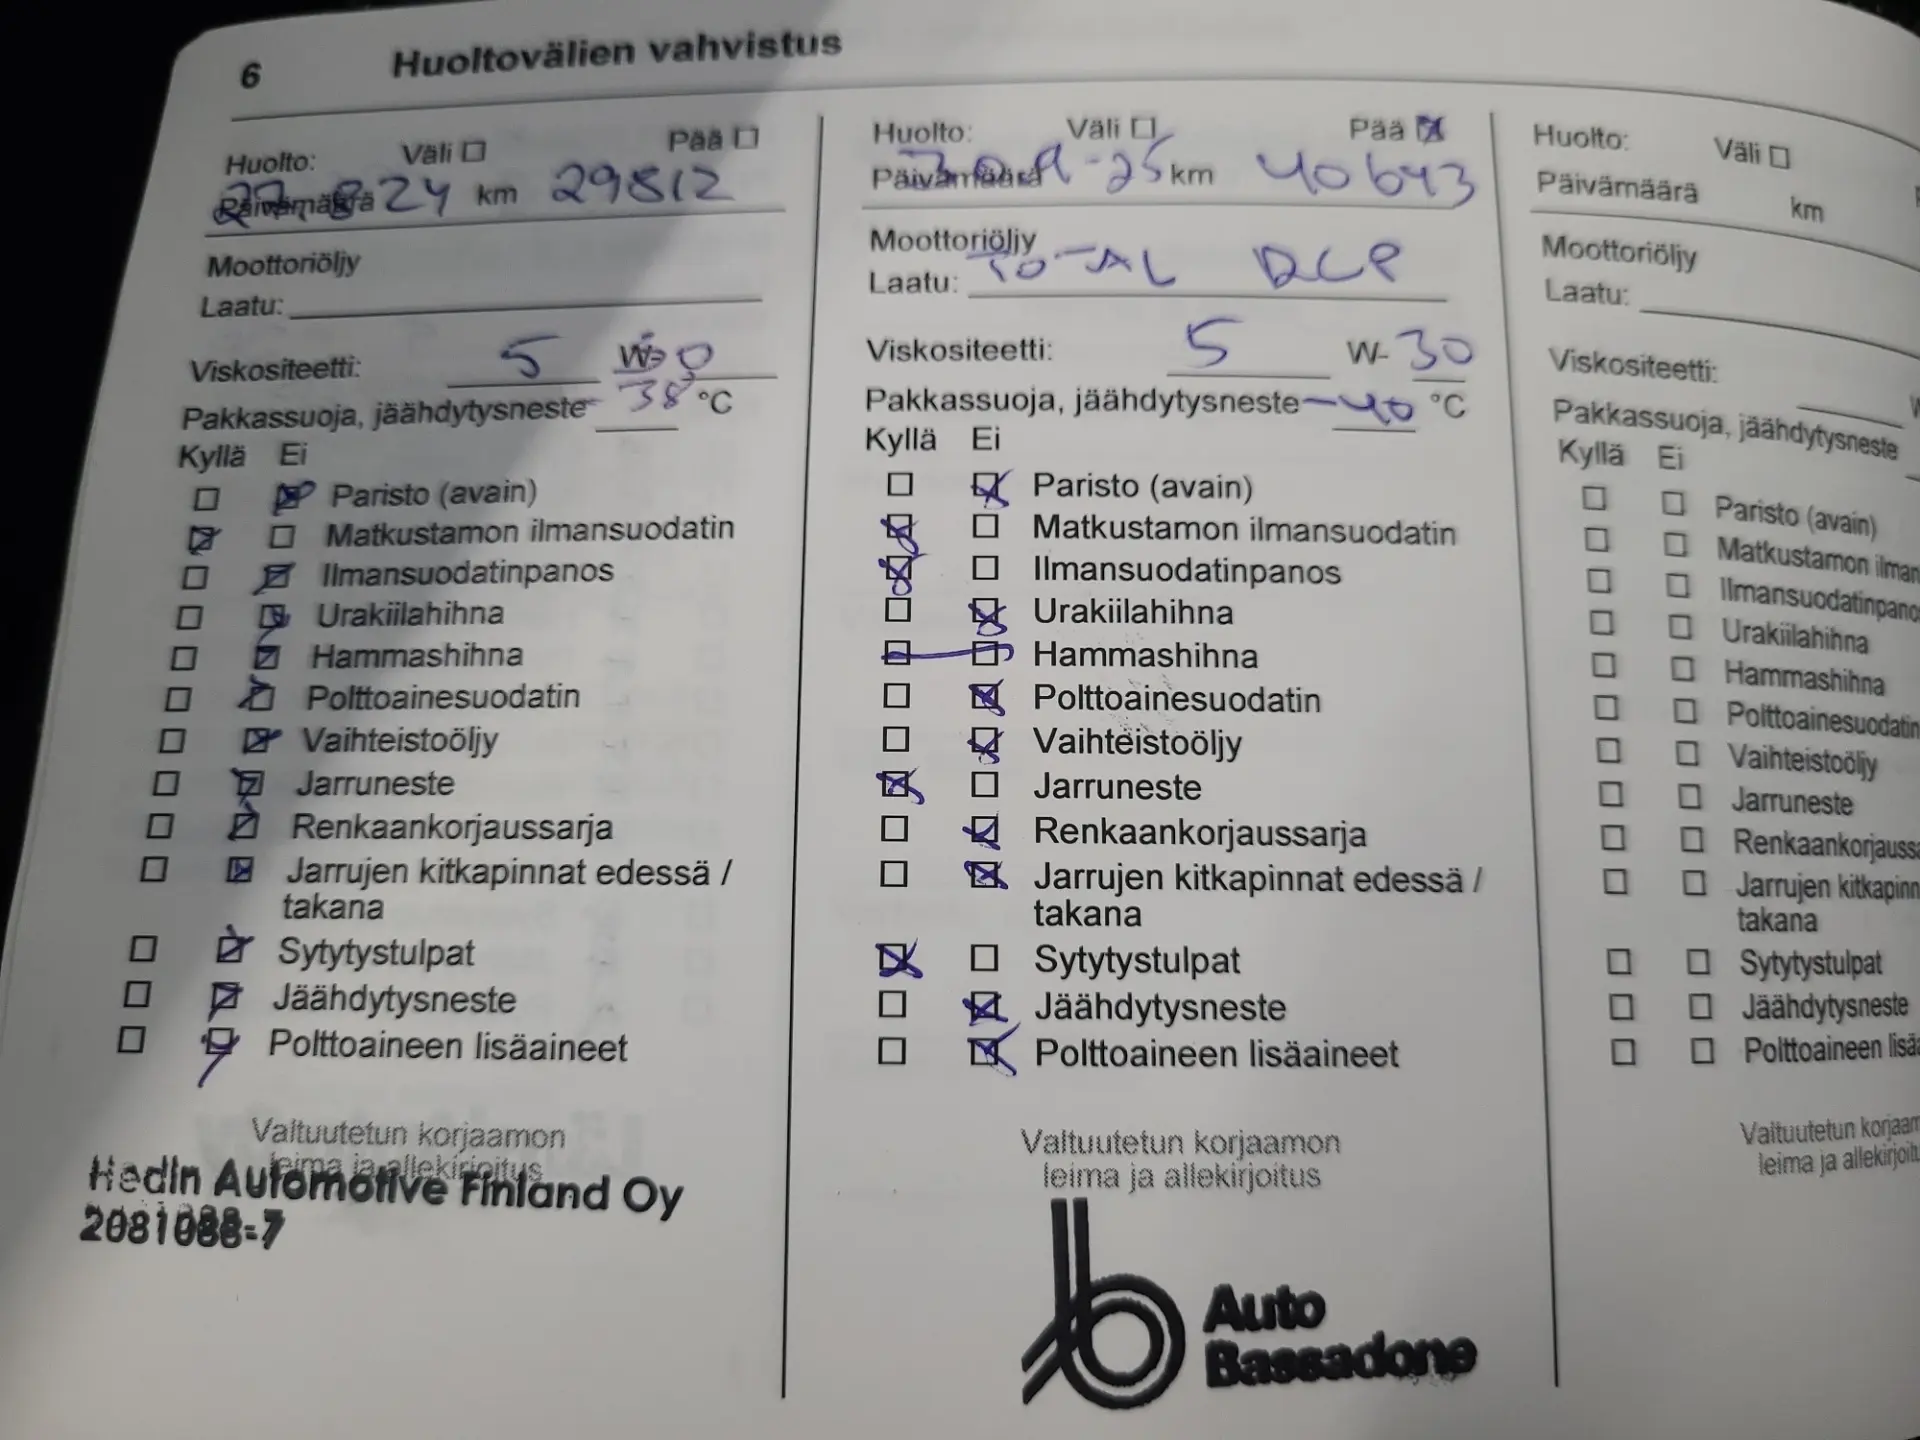 6 Huoltovälien vahvistus
Huolto: Väli Pää
Päivämäärä 27.8 24 km 29812
Moottoriöljy
Laatu:
Viskositeetti: 5 W-30
Pakkassuoja, jäähdytysneste -38 °C
Kyllä Ei
Paristo (avain)
Matkustamon ilmansuodatin
Ilmansuodatinpanos
Urakiilahihna
Hammashihna
Polttoainesuodatin
Vaihteistoöljy
Jarruneste
Renkaankorjaussarja
Jarrujen kitkapinnat edessä /
takana
Sytytystulpat
Jäähdytysneste
Polttoaineen lisäaineet
Valtuutetun korjaamon
leima ja allekirjoitus
Hedin Automotive Finland Oy
2081088-7
Huolto: Väli Pää
Päivämäärä 30.9-25 km 40643
Moottoriöljy
Laatu: TOTAL
Viskositeetti: 5 W-30
Pakkassuoja, jäähdytysneste -40 °C
Kyllä Ei
Paristo (avain)
Matkustamon ilmansuodatin
Ilmansuodatinpanos
Urakiilahihna
Hammashihna
Polttoainesuodatin
Vaihteistoöljy
Jarruneste
Renkaankorjaussarja
Jarrujen kitkapinnat edessä /
takana
Sytytystulpat
Jäähdytysneste
Polttoaineen lisäaineet
Valtuutetun korjaamon
leima ja allekirjoitus
Auto
Bassadone
Huolto: Väli
Päivämäärä km
Moottoriöljy
Laatu:
Viskositeetti:
Pakkassuoja, jäähdytysneste
Kyllä Ei
Paristo (avain)
Matkustamon ilman
Ilmansuodatinpanos
Urakiilahihna
Hammashihna
Polttoainesuodatin
Vaihteistoöljy
Jarruneste
Renkaankorjaussa
Jarrujen kitkapinn
takana
Sytytystulpat
Jäähdytysneste
Polttoaineen lisää
Valtuutetun korjaam
leima ja allekirjoitu